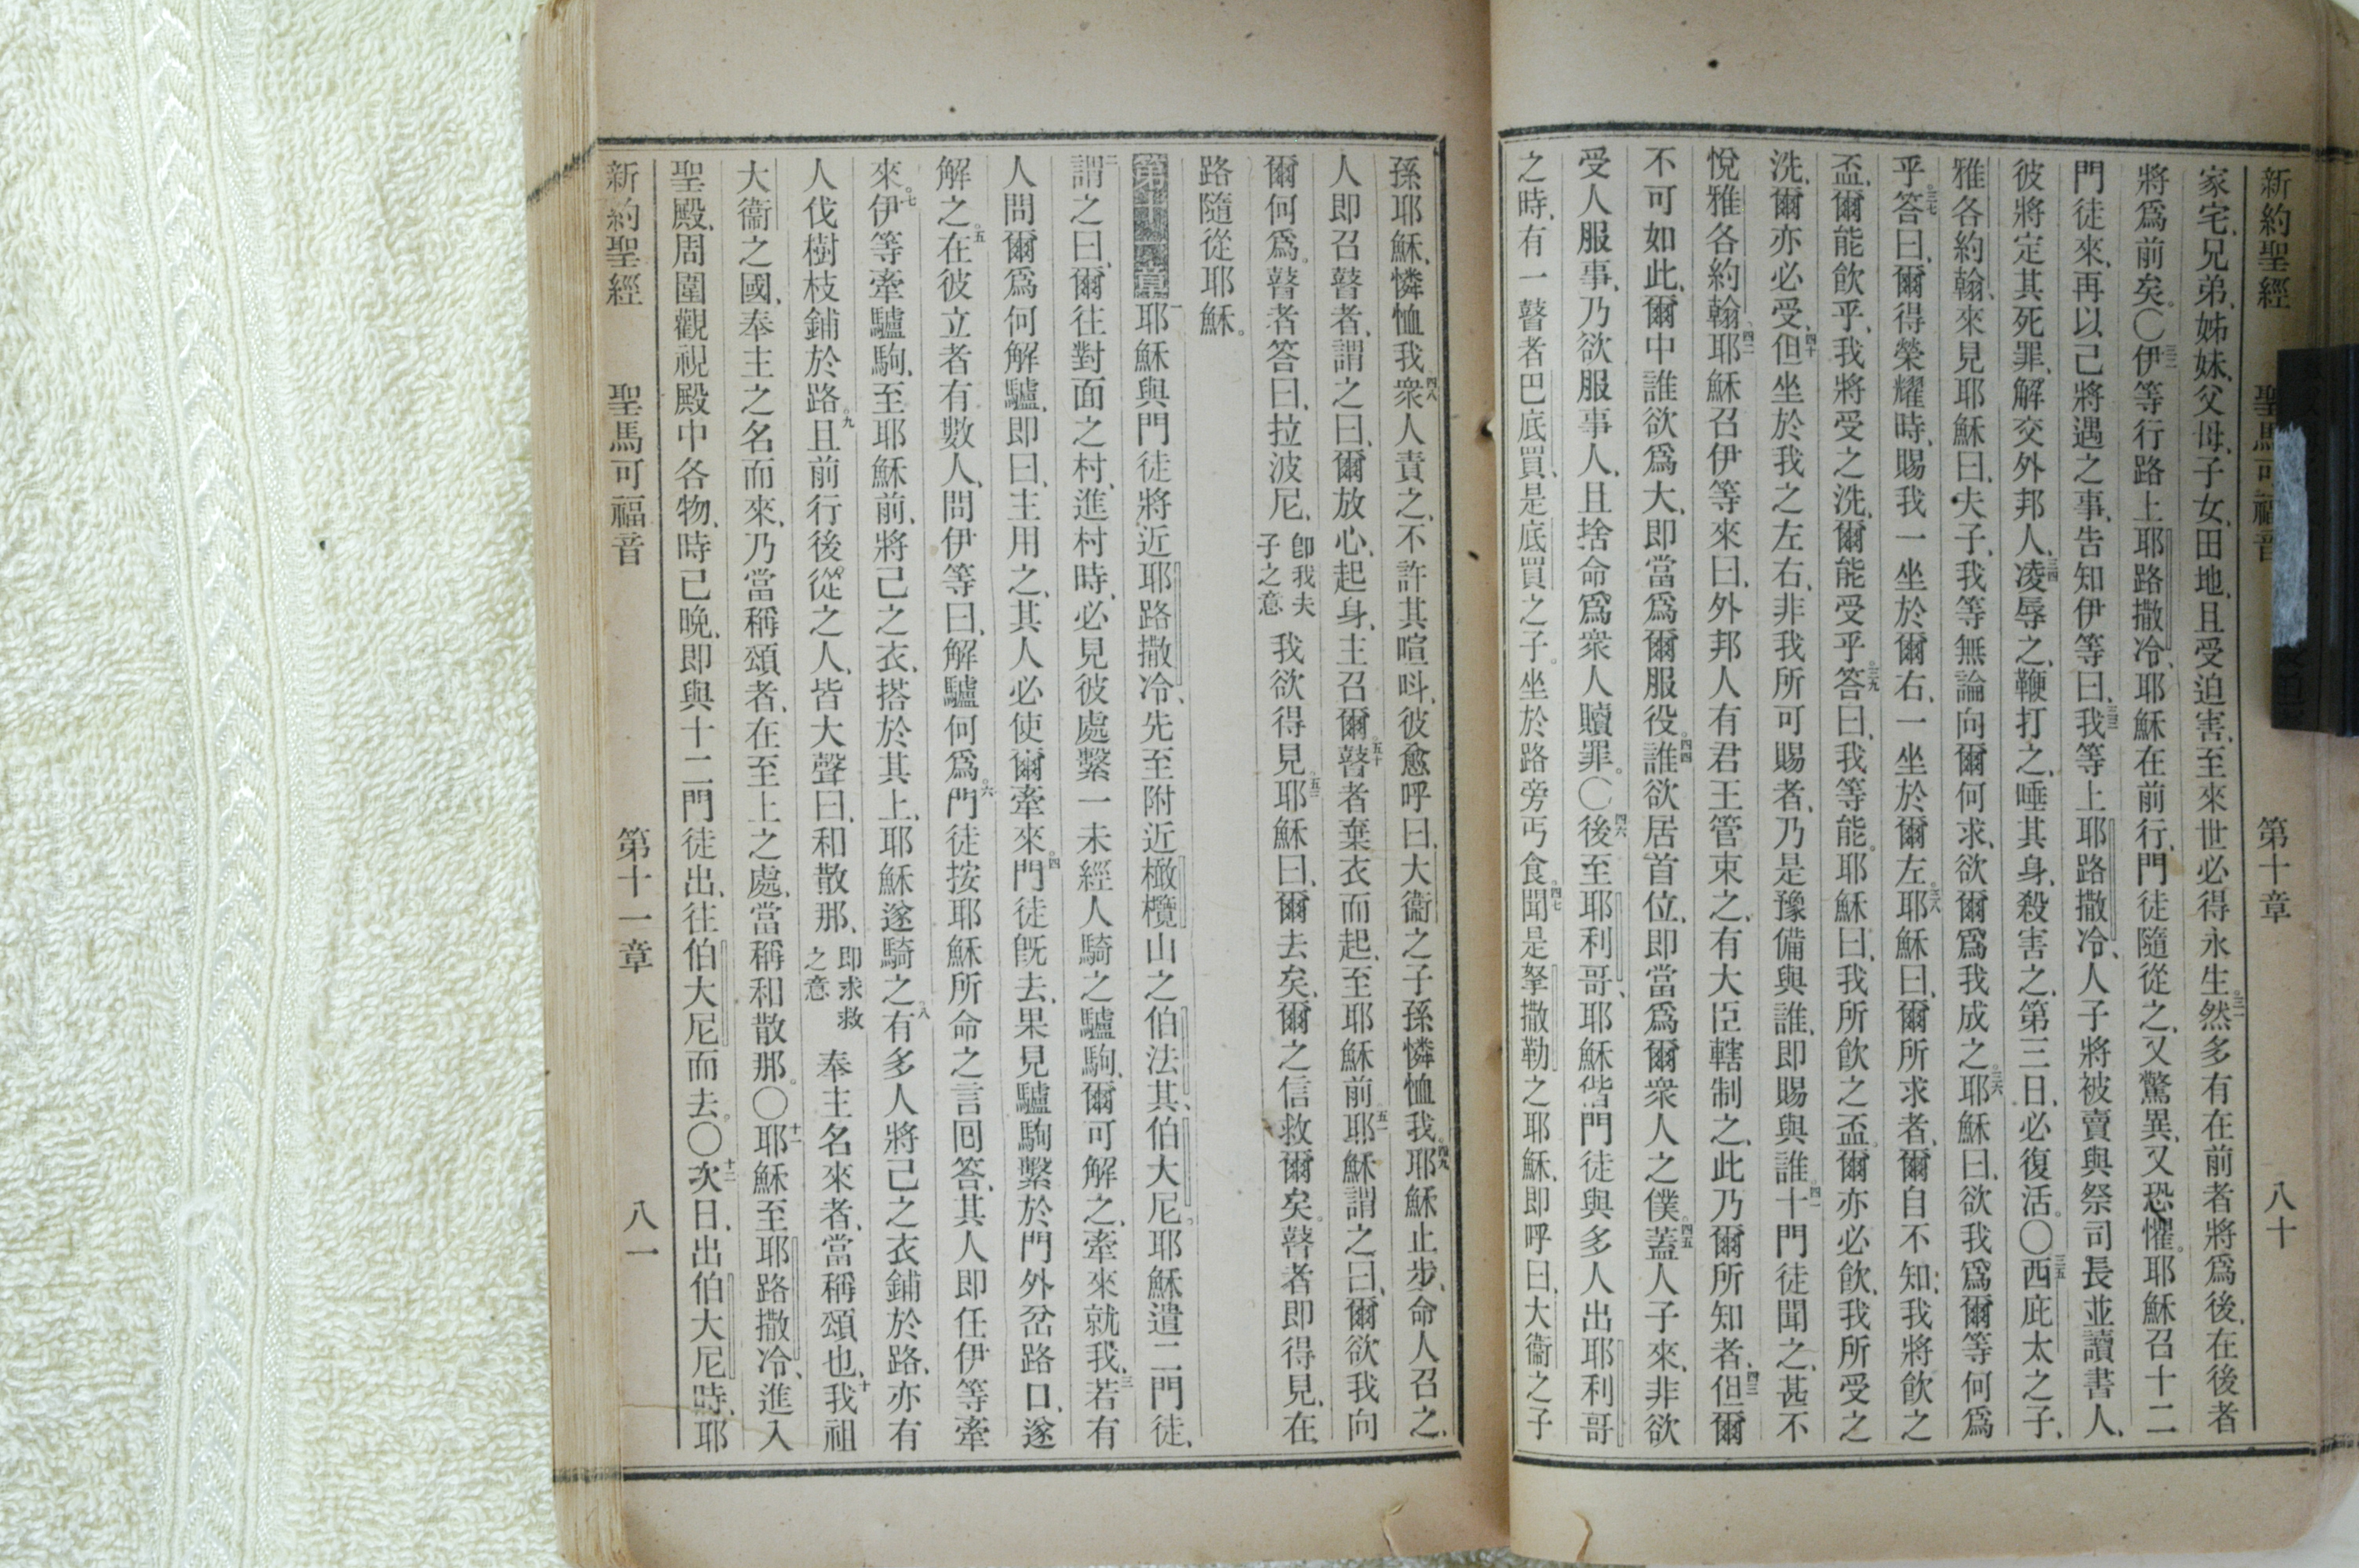 新約聖經 聖馬可福音 第十章 八十
家宅、兄弟、姊妹、父母、子女、田地、且受迫害、至來世必得永生。三一然多有在前者將爲後、在後者
將爲前矣。〇三二伊等行路上耶路撒冷、耶穌在前行、門徒隨從之、又驚異、又恐懼。耶穌召十二
門徒來、再以己將遇之事、告知伊等曰、三三我等上耶路撒冷、人子將被賣與祭司長並讀書人、
彼將定其死罪、解交外邦人、三四凌辱之、鞭打之、唾其身、殺害之、第三日、必復活。〇三五西庇太之子、
雅各約翰、來見耶穌曰、夫子、我等無論向爾何求、欲爾爲我成之。三六耶穌曰、欲我爲爾等何爲
乎。三七答曰、爾得榮耀時、賜我一坐於爾右、一坐於爾左。三八耶穌曰、爾所求者、爾自不知、我將飮之
盃、爾能飮乎、我將受之洗、爾能受乎。三九答曰、我等能。耶穌曰、我所飮之盃、爾亦必飮、我所受之
洗、爾亦必受、四十但坐於我之左右、非我所可賜者、乃是豫備與誰、即賜與誰。四一十門徒聞之、甚不
悅雅各約翰。四二耶穌召伊等來曰、外邦人有君王管束之、有大臣轄制之、此乃爾所知者、四三但爾
不可如此、爾中誰欲爲大、即當爲爾服役。四四誰欲居首位、即當爲爾衆人之僕。四五蓋人子來、非欲
受人服事、乃欲服事人、且捨命爲衆人贖罪。〇四六後至耶利哥、耶穌偕門徒與多人出耶利哥
之時、有一瞽者巴底買、是底買之子。坐於路旁丐食。四七聞是拏撒勒之耶穌、即呼曰、大衞之子
孫耶穌、憐恤我。四八衆人責之、不許其喧呌、彼愈呼曰、大衞之子孫憐恤我。四九耶穌止步、命人召之、
人即召瞽者、謂之曰、爾放心、起身、主召爾。五十瞽者棄衣而起、至耶穌前。五一耶穌謂之曰、爾欲我向
爾何爲。瞽者答曰、拉波尼、卽我夫子之意 我欲得見。五二耶穌曰、爾去矣、爾之信救爾矣。瞽者即得見、在
路隨從耶穌。
第十一章 一耶穌與門徒將近耶路撒冷、先至附近橄欖山之伯法其、伯大尼。耶穌遣二門徒、
二謂之曰、爾往對面之村、進村時、必見彼處繫一未經人騎之驢駒、爾可解之、牽來就我、三若有
人問爾爲何解驢、即曰、主用之、其人必使爾牽來。四門徒旣去、果見驢駒繫於門外岔路口、遂
解之。五在彼立者有數人、問伊等曰、解驢何爲。六門徒按耶穌所命之言回答、其人即任伊等牽
來。七伊等牽驢駒、至耶穌前、將己之衣、搭於其上、耶穌遂騎之。八有多人將己之衣鋪於路、亦有
人伐樹枝鋪於路。九且前行後從之人、皆大聲曰、和散那、即求救之意 奉主名來者、當稱頌也、十我祖
大衞之國、奉主之名而來、乃當稱頌者、在至上之處、當稱和散那。〇十一耶穌至耶路撒冷、進入
聖殿、周圍觀視殿中各物、時已晚、即與十二門徒出、往伯大尼而去。〇十二次日、出伯大尼時、耶
新約聖經 聖馬可福音 第十一章 八一